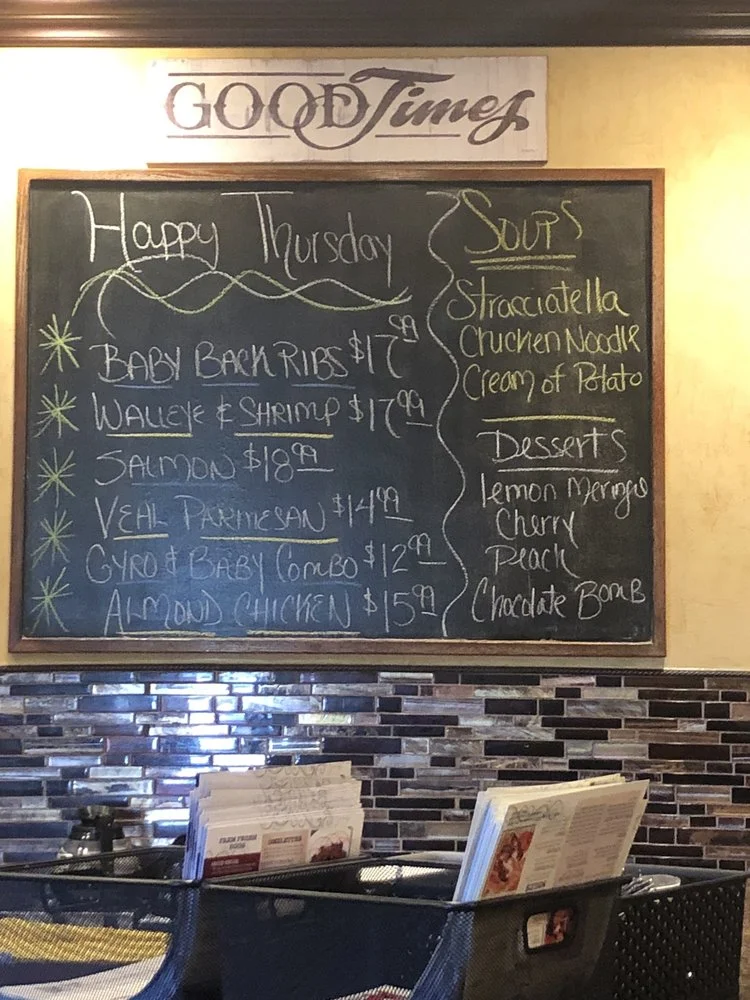 GOOD Times
Happy Thursday
BABY BACK RIBS $17 99
WALLEYE & SHRIMP $17 99
SALMON $18 99
VEAL PARMESAN $14 99
GYRO & BABY COMBO $12 99
ALMOND CHICKEN $15 99
Soups
Stracciatella
Chicken Noodle
Cream of Potato
Desserts
lemon Meringue
Cherry
Peach
Chocolate Bomb
FARM FRESH
EGGS
OMELETTES